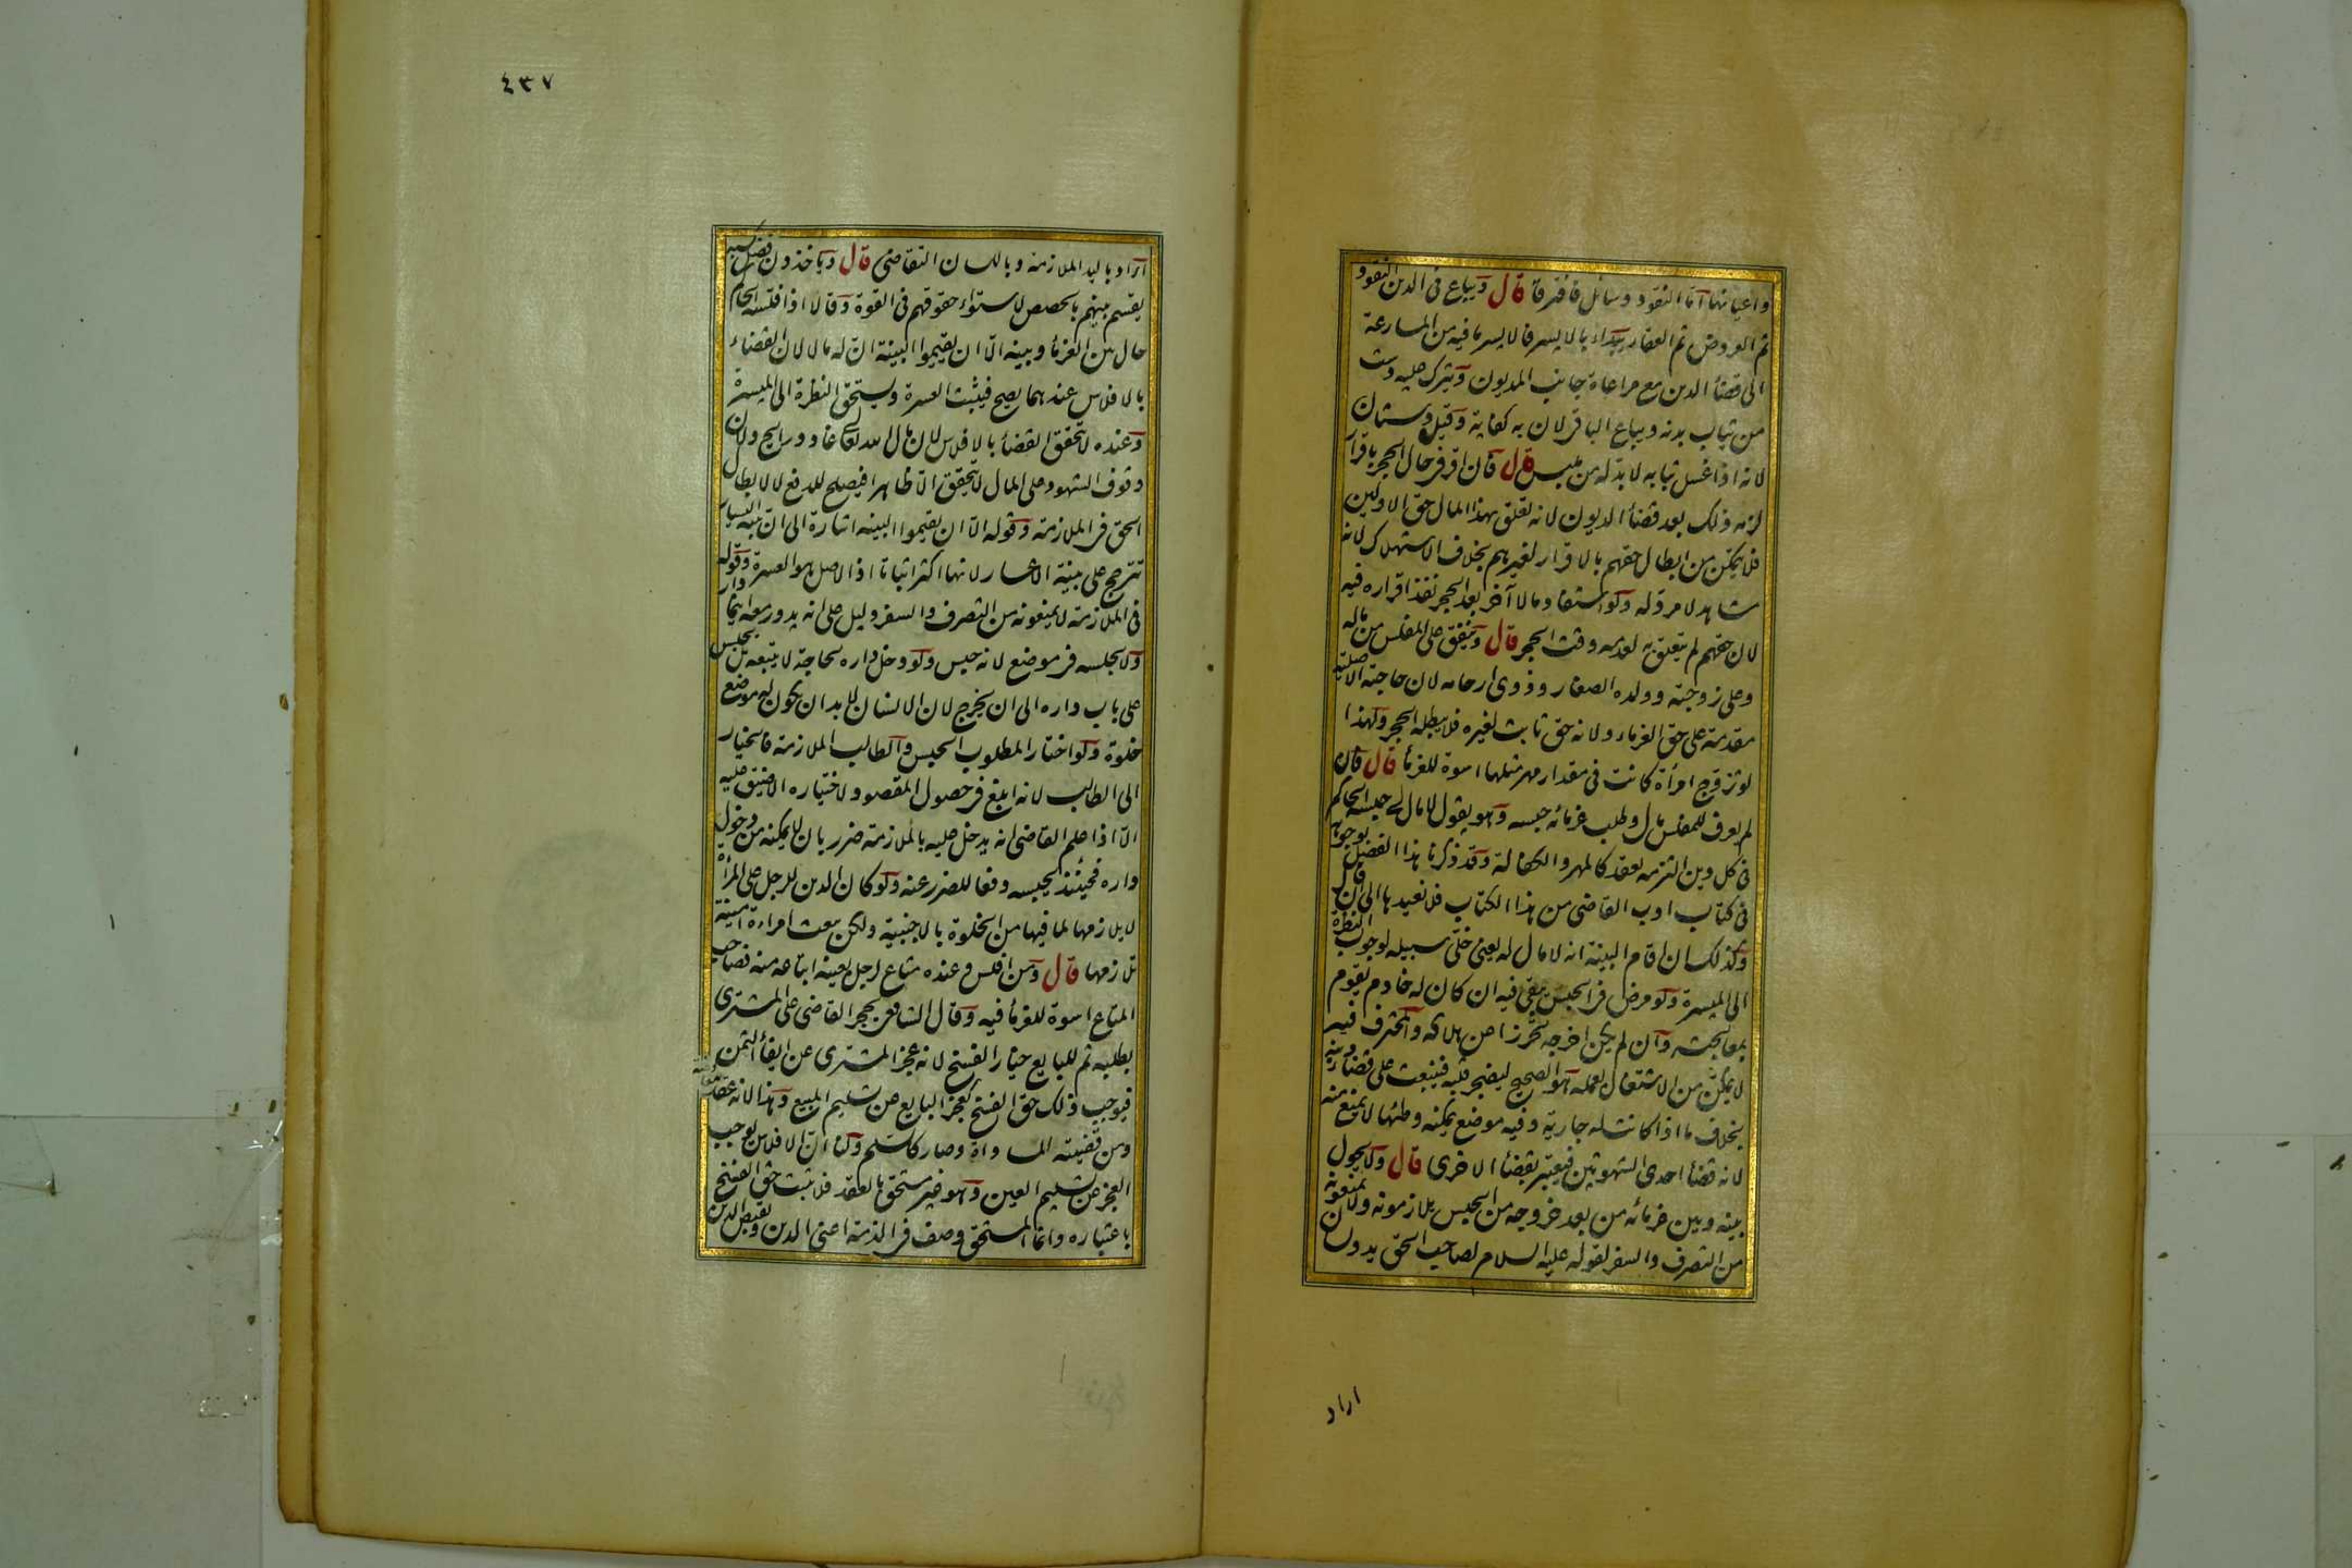 واعيانها اما النقود وسائل فافترقا قال ويباع فى الدين النقود
ثم العروض ثم العقار يبداء بالايسر فالايسر لما فيه من المسارعة
الى قضأ الدين مع مراعاة جانب المديون ويترك عليه دست
من ثياب بدنه ويباع الباقى لان به كفاية وقيل دستان
لانه اذا غسل ثيابه لا بد له من ملبس قال فان اقر فى حال الحجر باقرار
لزمه ذلك بعد قضأ الديون لانه تعلق بهذا المال حق الاولين
فلا يتمكن من ابطال حقهم بالاقرار لغيرهم بخلاف الاستهلاك لانه
مشاهد لا مرد له ولو استفاد مالا آخر بعد الحجر نفذ اقراره فيه
لان حقهم لم يتعلق به لعدمه وقت الحجر قال وينفق على المفلس من ماله
وعلى زوجته وولده الصغار وذوى ارحامه لان حاجته الاصلية
مقدمة على حق الغرماء ولانه حق ثابت لغيره فلا يبطله الحجر ولهذا
لو تزوج امرأة كانت فى مقدار مهر مثلها اسوة للغرمأ قال فان
لم يعرف للمفلس مال وطلب غرمائه حبسه وهو يقول لا مال لى حبسه الحاكم
فى كل دين التزمه بعقد كالمهر والكفالة وقد ذكرنا هذا الفصل بوجوهه
فى كتاب ادب القاضى من هذا الكتاب فلا نعيدها الى ان قال
وكذلك ان اقام البينة انه لا مال له يعنى خلى سبيله لوجوب النظرة
الى الميسرة ولو مرض فى الحبس يبقى فيه ان كان له خادم يقوم
بمعالجته وان لم يكن اخرجه تحرزا عن هلاكه والمحترف فيه
لا يمكن من الاشتغال بعمله هو الصحيح ليضجر قلبه فينبعث على قضأ دينه
بخلاف ما اذا كانت له جارية وفيه موضع يمكنه وطئها لا يمنع منه
لانه قضأ احدى الشهوتين فيعتبر بقضأ الاخرى قال ولا يحول
بينه وبين غرمائه من بعد خروجه من الحبس يلازمونه ولا يمنعونه
من التصرف والسفر لقوله عليه السلام لصاحب الحق يد ولسان
اراد
٤٣٧
اراد باليد الملازمة وباللسان التقاضى قال وياخذون فضل كسبه
يقسم بينهم بالحصص لاستواء حقوقهم فى القوة وقالا اذا فلسه الحاكم
حال بين الغرمأ وبينه الا ان يقيموا البينة ان له مالا لان القضاء
بالافلاس عندهما يصح فيثبت العسرة ويستحق النظرة الى الميسرة
وعنده لا يتحقق القضأ بالافلاس لان مال الله تعالى غاد ورايح ولان
وقوف الشهود على المال لا يتحقق الا ظاهرا فيصلح للدفع لا لابطال
الحق فى الملازمة وقوله الا ان يقيموا البينه اشارة الى ان بينة اليسار
تترجح على بينة الاعسار لانها اكثر اثباتا اذ الاصل هو العسرة وقوله
فى الملازمة لا يمنعونه من التصرف والسفر دليل على انه يدور معه اينما دار
ولا يجلسه فى موضع لانه حبس ولو دخل داره لحاجة لا يتبعه بل يجلس
على باب داره الى ان يخرج لان الانسان لا بد ان يكون له موضع
خلوة ولو اختار المطلوب الحبس والطالب الملازمة فالخيار
الى الطالب لانه ابلغ فى حصول المقصود لاختياره الاضيق عليه
الا اذا علم القاضى انه يدخل عليه بالملازمة ضرر بان لا يمكنه من دخول
داره فحينئذ يحبسه دفعا للضرر عنه ولو كان الدين للرجل على المرأة
لا يلازمها لما فيها من الخلوة بالاجنبية ولكن يبعث امراءة امينة
تلازمها قال ومن افلس وعنده متاع لرجل بعينه ابتاعه منه فصاحب
المتاع اسوة للغرمأ فيه وقال الشافعى يحجر القاضى على المشترى
بطلبه ثم للبايع خيار الفسخ لانه عجز المشترى عن ايفأ الثمن
فيوجب ذلك حق الفسخ كعجز البايع عن تسليم المبيع وهذا لانه عقد معاوضة
ومن قضيته المساواة وصار كالسلم ولنا ان الافلاس يوجب
العجز عن تسليم العين وهو غير مستحق بالعقد فلا يثبت حق الفسخ
باعتباره وانما المستحق وصف فى الذمة اعنى الدين وبقبض الدين